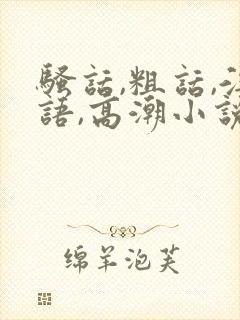 騷話,粗話,
語,高潮小說
绵羊泡芙